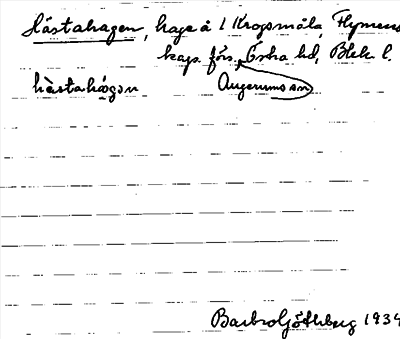 Hästahagen, hage å 1 Krogsmåla, Flymens
kap. förs. Östra hd, Blek. l.
hὲstahɑ̀gɜn Augerums sn
Barbro Götlberg 1934